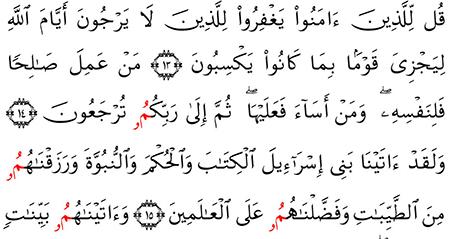 قُل لِّلَّذِينَ ءَامَنُوا۟ يَغْفِرُوا۟ لِلَّذِينَ لَا يَرْجُونَ أَيَّامَ اَ۬للَّهِ
لِيَجْزِىَ قَوْمَۢا بِمَا كَانُوا۟ يَكْسِبُونَ ١٣ مَنْ عَمِلَ صَٰلِحًا
فَلِنَفْسِهِۦ وَمَنْ أَسَآءَ فَعَلَيْهَا ثُمَّ إِلَىٰ رَبِّكُمُۥ تُرْجَعُونَ ١٤
وَلَقَدْ ءَاتَيْنَا بَنِىٓ إِسْرَٰٓءِيلَ اَ۬لْكِتَٰبَ وَالْحُكْمَ وَالنُّبُوَّةَ وَرَزَقْنَٰهُمُۥ
مِنَ اَ۬لطَّيِّبَٰتِ وَفَضَّلْنَٰهُمُۥ عَلَى اَ۬لْعَٰلَمِينَ ١٥ وَءَاتَيْنَٰهُمُۥ بَيِّنَٰتٍ